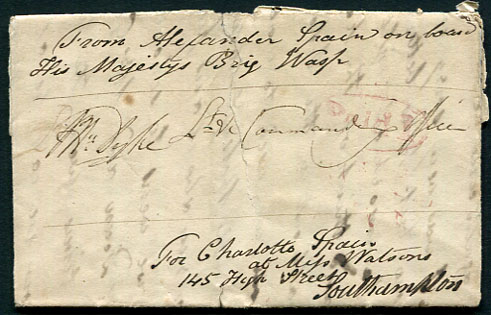 From Alexander Spain on board
His Majestys Brig Wasp
Wm Dyke Lt & Commandg Officer
For Charlotte Spain
at Miss Watsons
145 High Street
Southampton